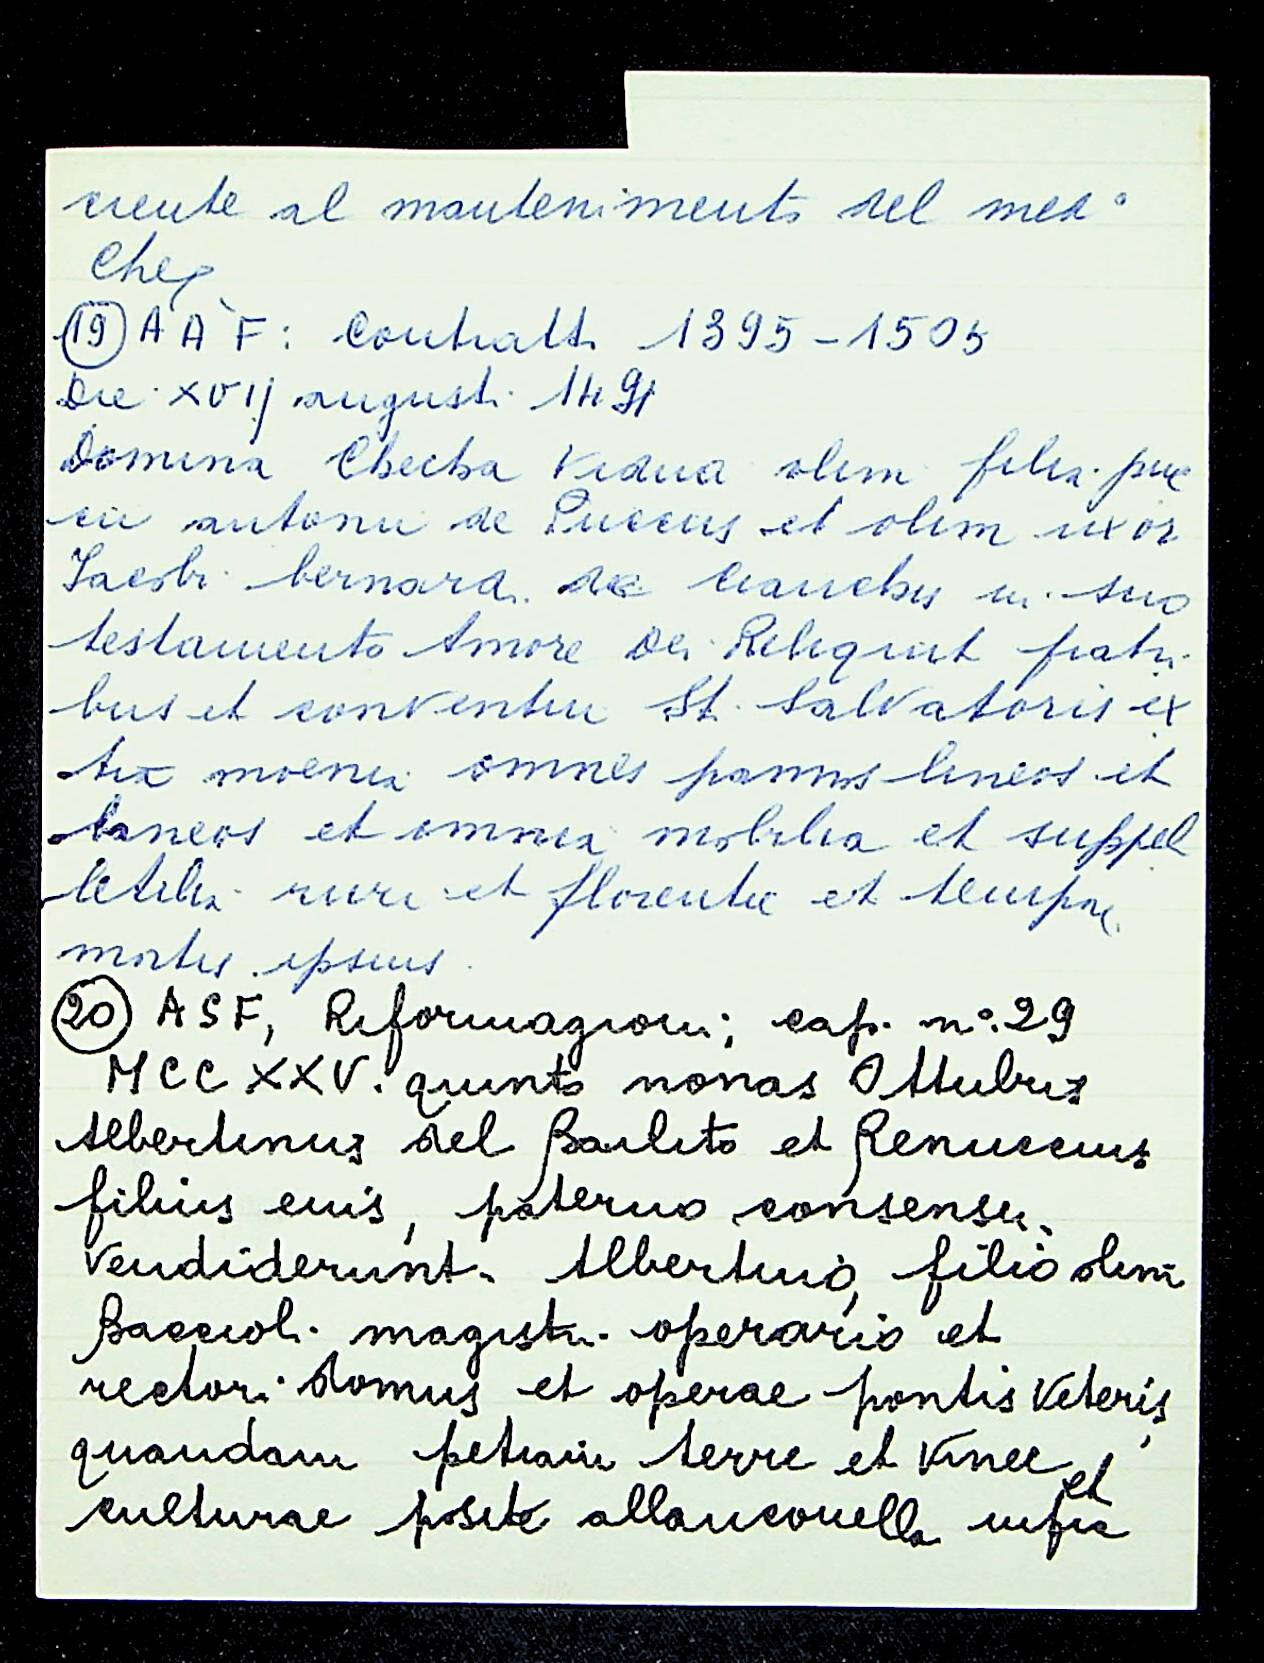 ciente al mantenimento del med°
Che
(19) A A F: Contratti 1395-1505
Die XVIJ augusti 1491
Domina Checha Vidua olim filia puc
cii antonii de Pucciis et olim uxor
Jacobi bernardi de cianchis in suo
testamento Amore Dei Reliquit fratri
bus et conventui St. Salvatoris ex
tra moenia omnes pannos lineos et
laneos et omnia mobilia et suppel
letilia ruri et florentie et tempore
mortis ipsius.
(20) ASF, Riformagioni; cap. n°. 29
MCCXXV. quinto nonas Ottubris
Albertinus del Bailito et Renuccius
filius euis, paterno consensu,
Vendiderunt Albertino, filio olim
Baccioli magistri operario et
rectori domus et operae pontis Veteris,
quandam petiam terre et Vinee et
culturae posite allanconella infra